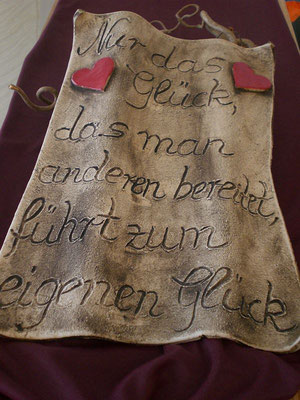 Nur das
Glück,
das man
anderen bereitet,
führt zum
eigenen Glück